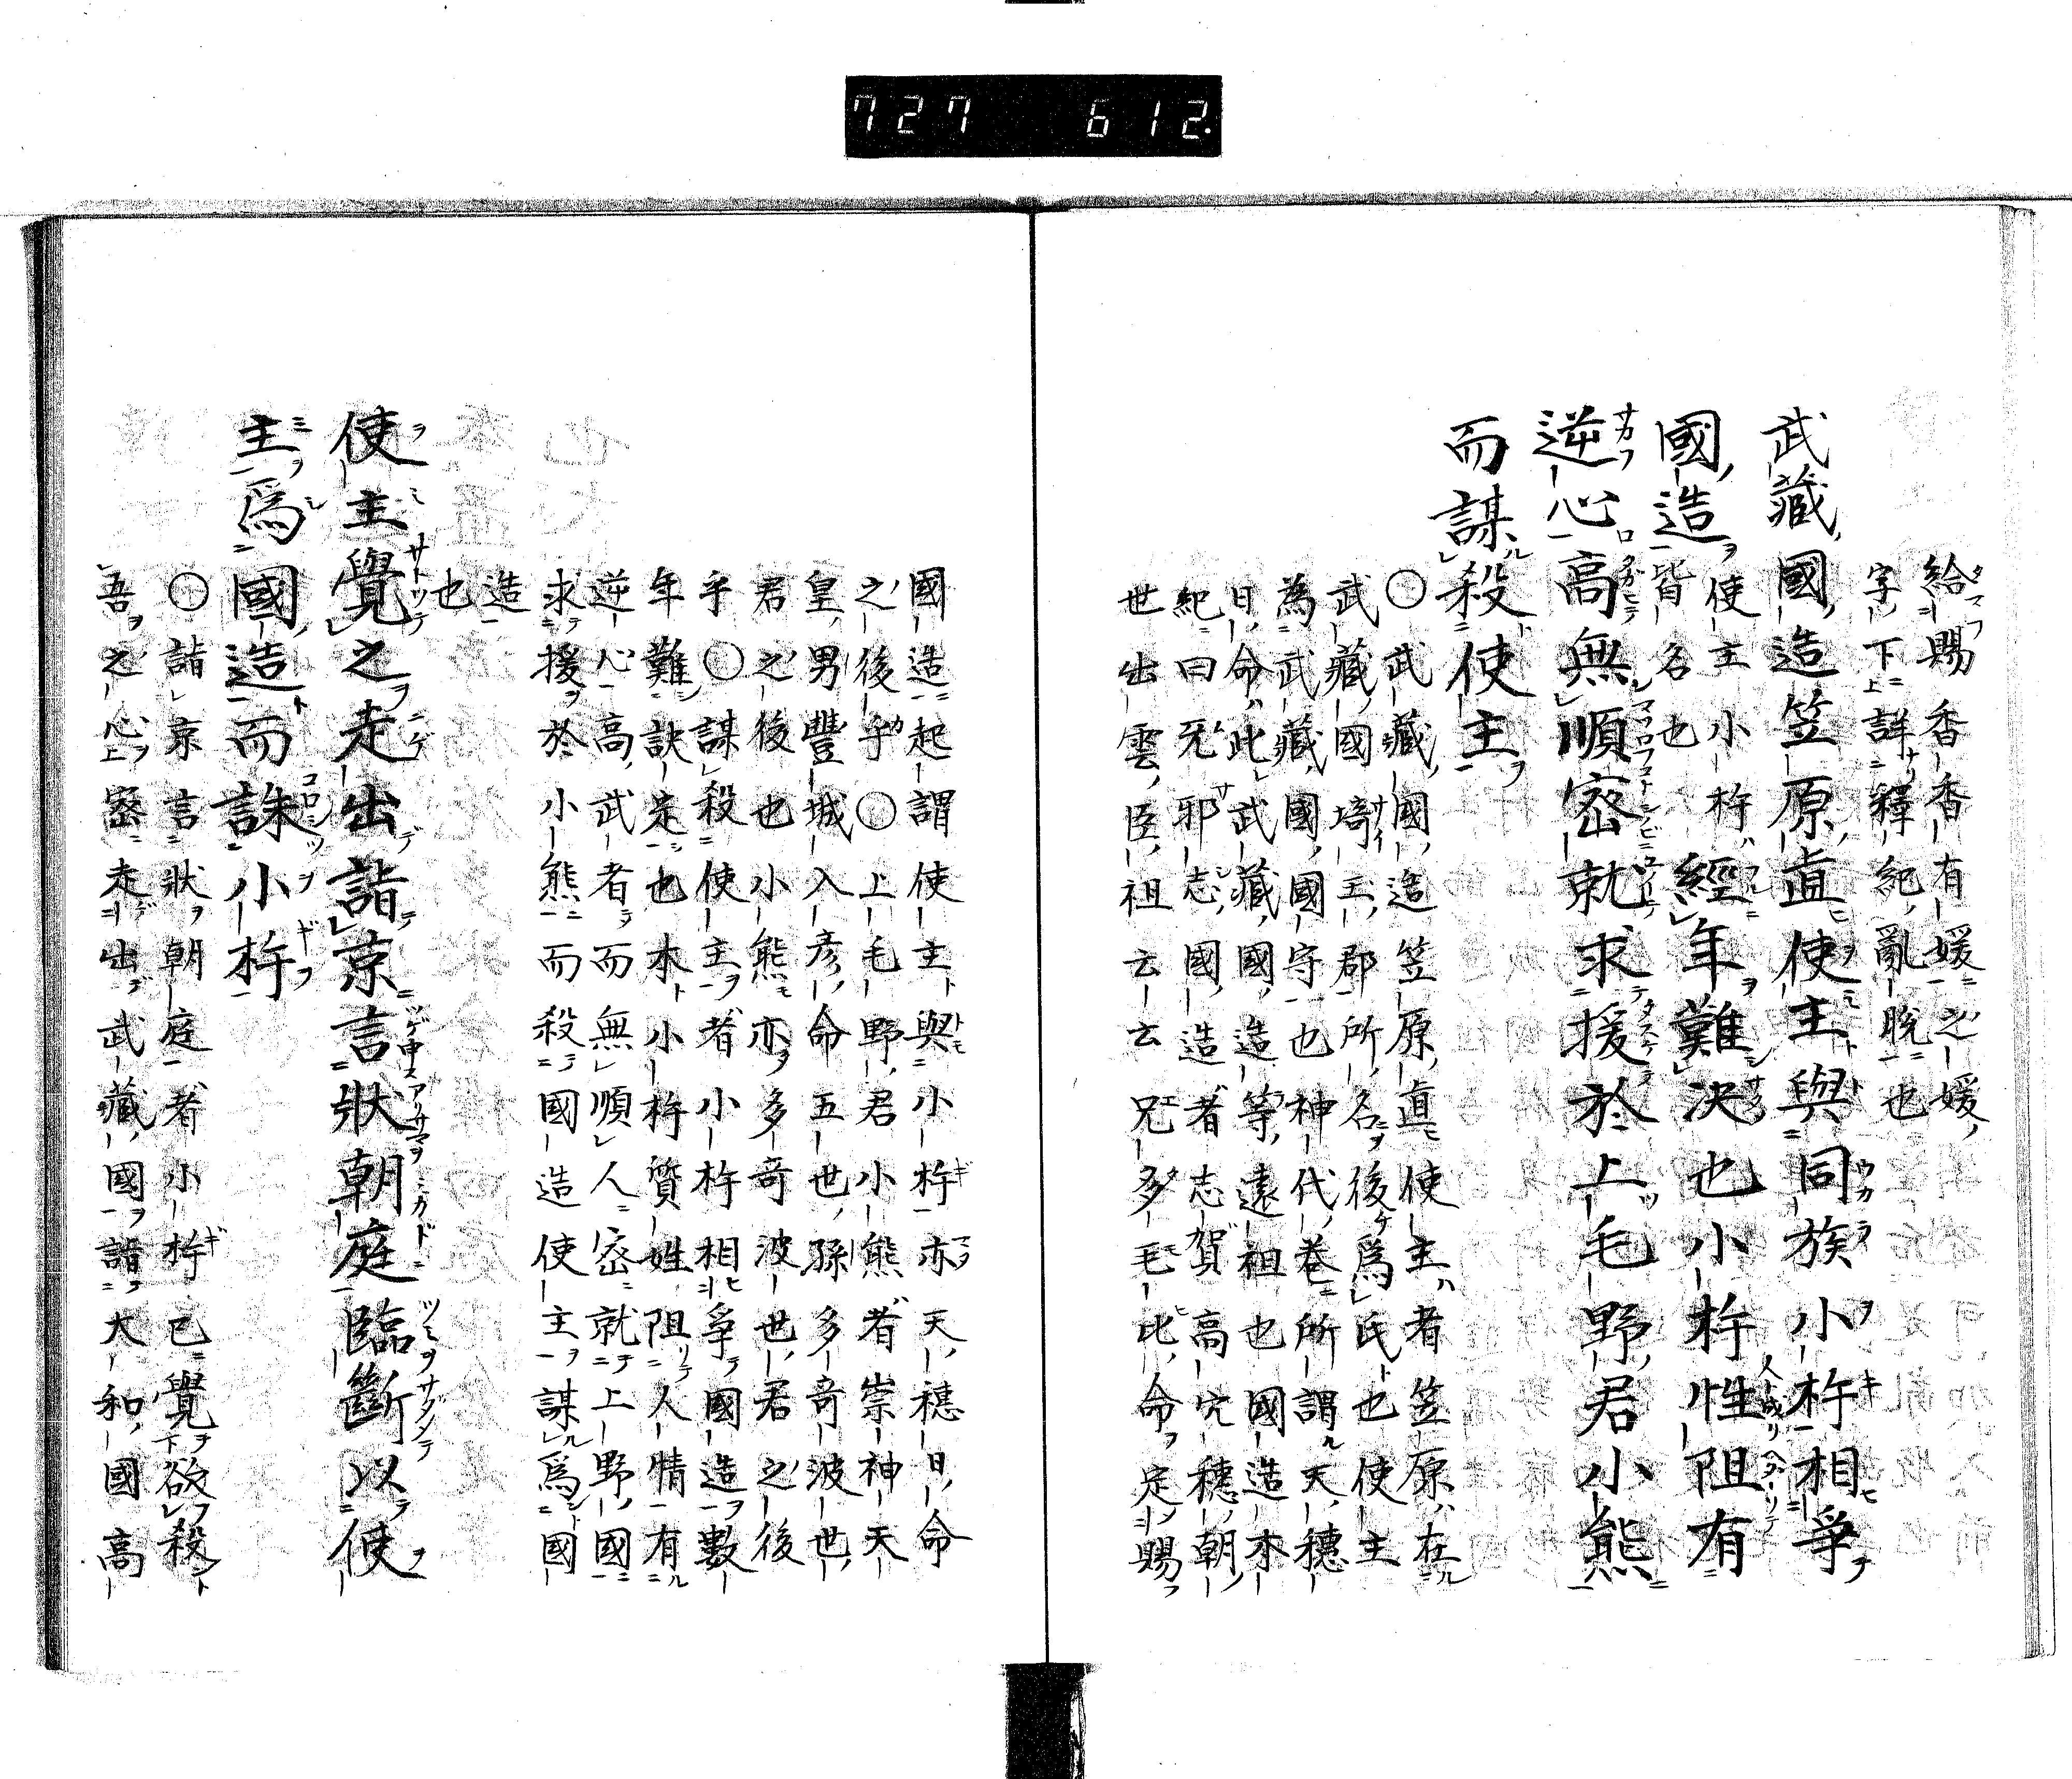 727 612.
給賜香香有媛之媛
字下詳釋紀亂脱也
武藏國造笠原直使主與同族小杵相爭
國造使主小杵皆名也經年難決也小杵性阻有
逆心高無順密就求援於上毛野君小熊
而謀殺使主
○武藏國造笠原直使主者笠原在
武藏國埼玉郡所名後為氏也使主
為武藏國國守也神代卷所謂天穗
日命此武藏國造等遠祖也國造本
紀曰无邪志國造者志賀高穴穗朝
世出雲臣祖云云兄多毛比命定賜
國造起謂使主與小杵亦天穗日命
之後乎○上毛野君小熊者崇神天
皇男豐城入彦命五世孫多竒波世
君之後也小熊亦多竒波世君之後
乎○謀殺使主者小杵相爭國造數
年難訣定也本小杵質姓阻人情有
逆心高武者而無順人密就上野國
求援於小熊而殺國造使主謀為國
造
也
使主覺之走出詣京言狀朝庭臨斷以使
主為國造而誅小杵
○詣京言狀朝庭者小杵已覺欲殺
吾之心密走出武藏國詣大和國高